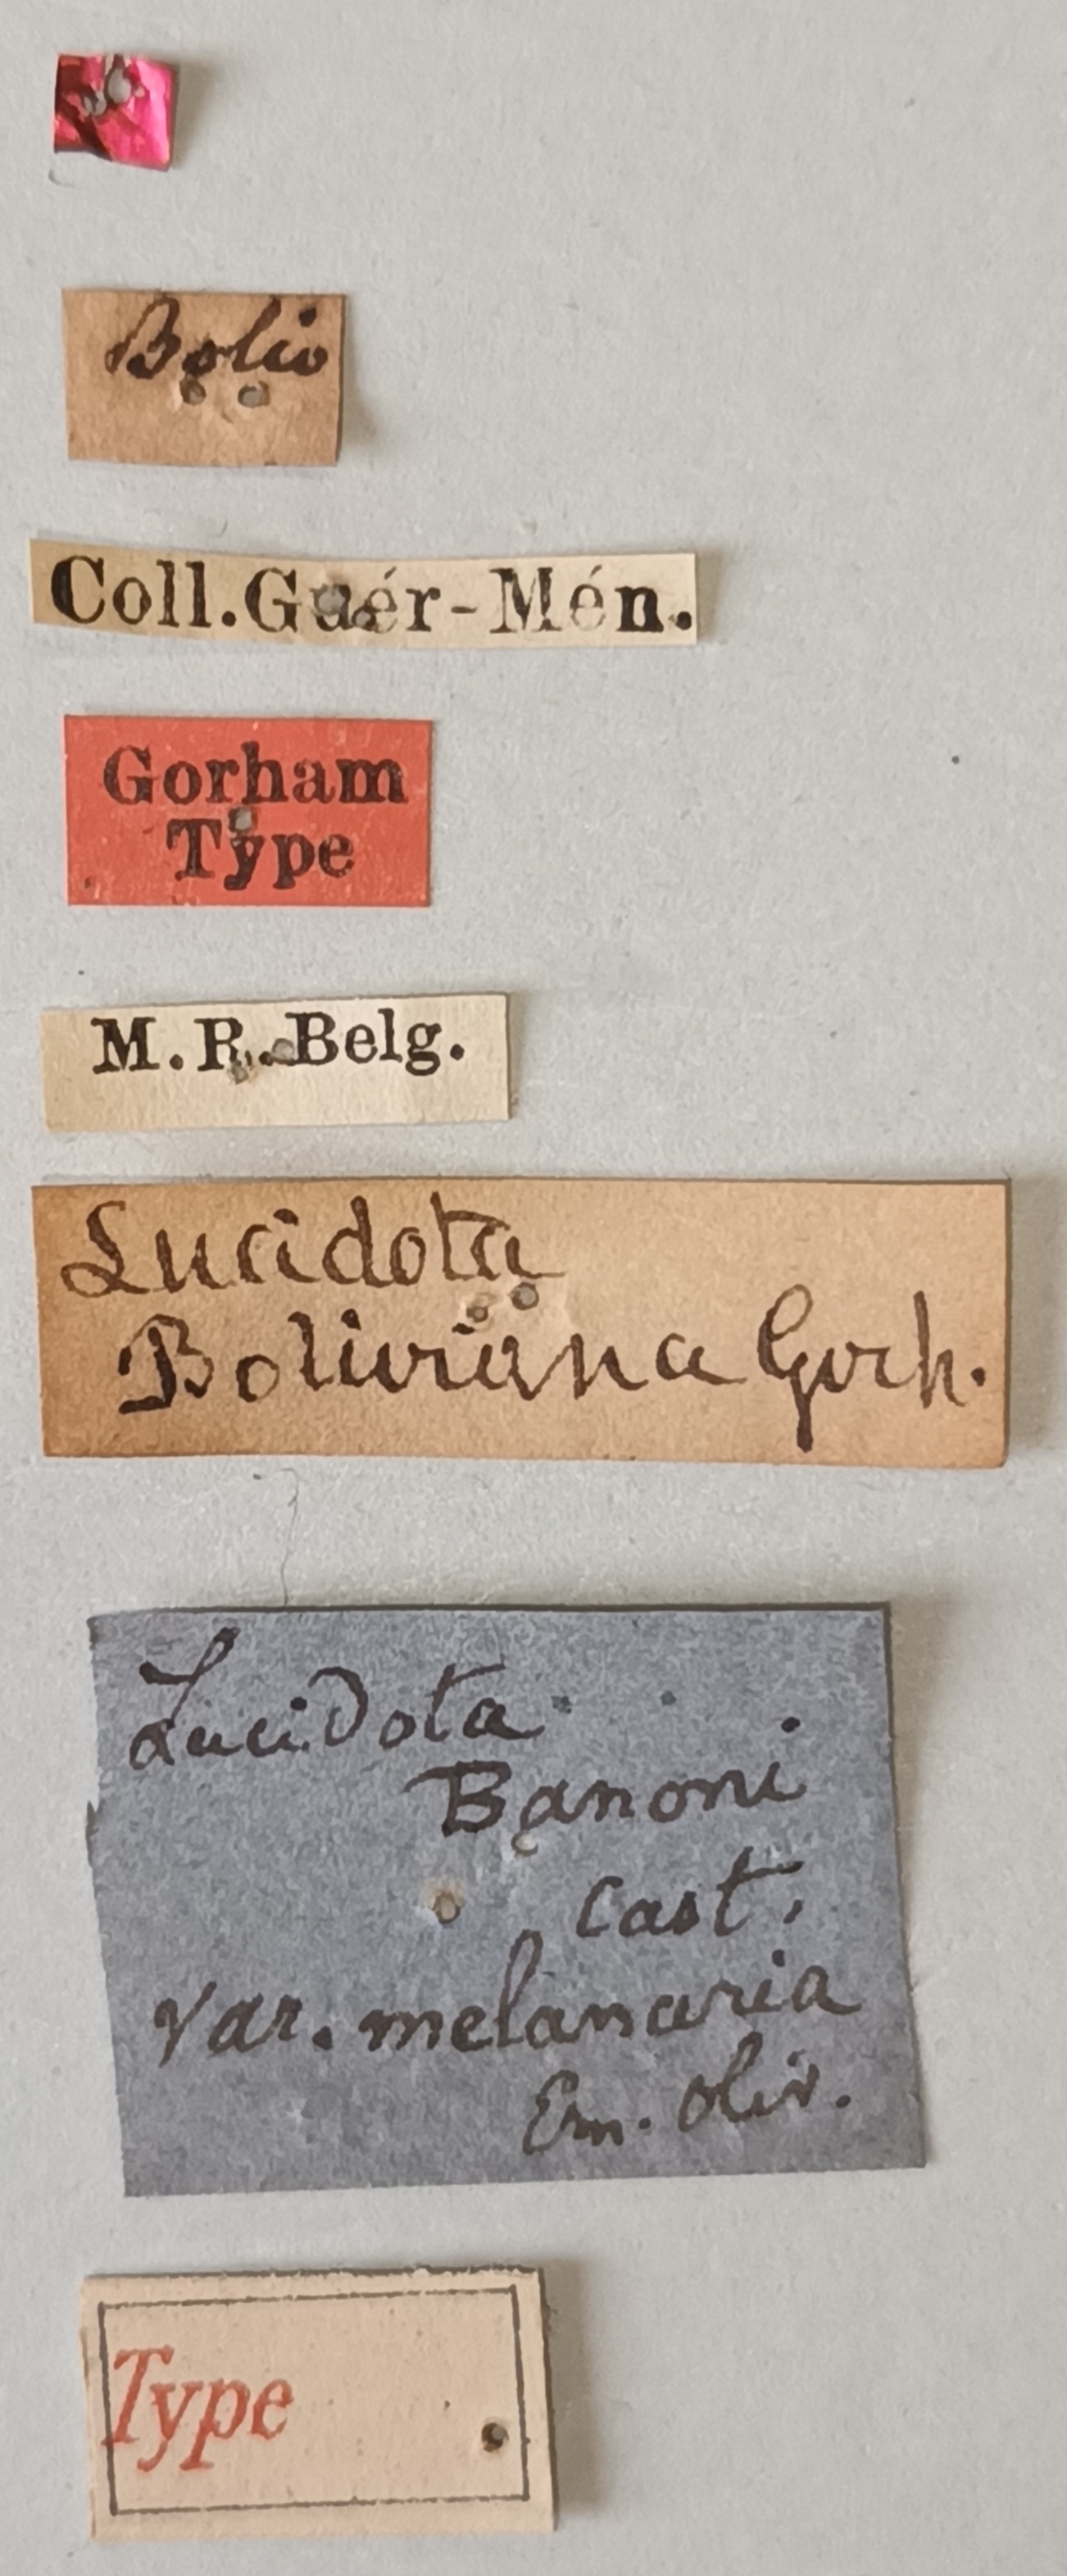 Boliv
Coll.Guér-Mén.
Gorham
Type
M.R.Belg.
Lucidota
Boliviana Gorh.
Lucidota
Banoni
Cast.
var. melanaria
Em. Oliv.
Type